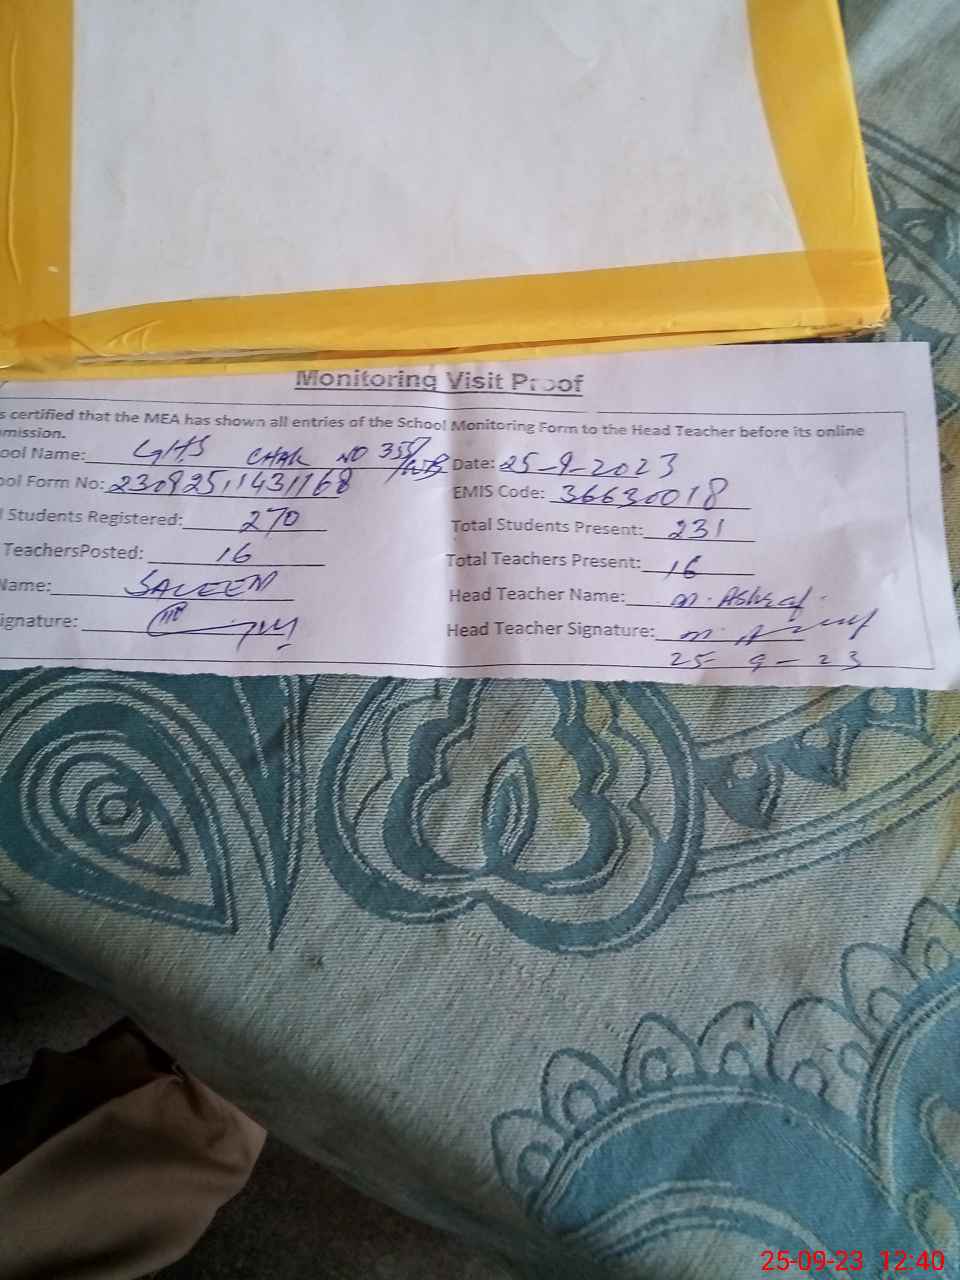 Monitoring Visit Proof
s certified that the MEA has shown all entries of the School Monitoring Form to the Head Teacher before its online
mission.
ool Name: GHS CHAK NO 358/WB Date: 25-9-2023
ool Form No: 230925,1431168 EMIS Code: 36630018
l Students Registered: 270 Total Students Present: 231
TeachersPosted: 16 Total Teachers Present: 16
Name: SALEEM Head Teacher Name: M. Ashraf.
ignature: Head Teacher Signature:
25-9-23
25-09-23 12:40